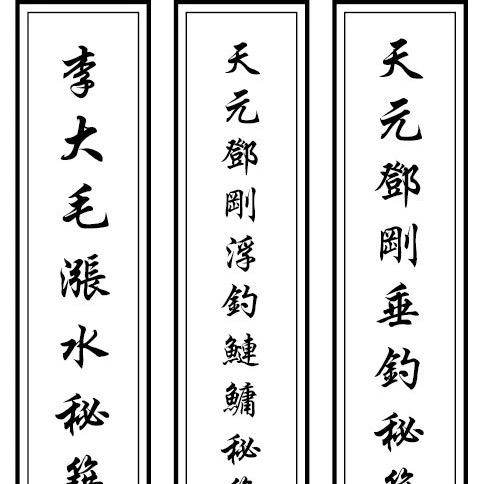 天元鄧剛垂釣秘籍
天元鄧剛浮釣鰱鱅秘籍
李大毛漲水秘籍